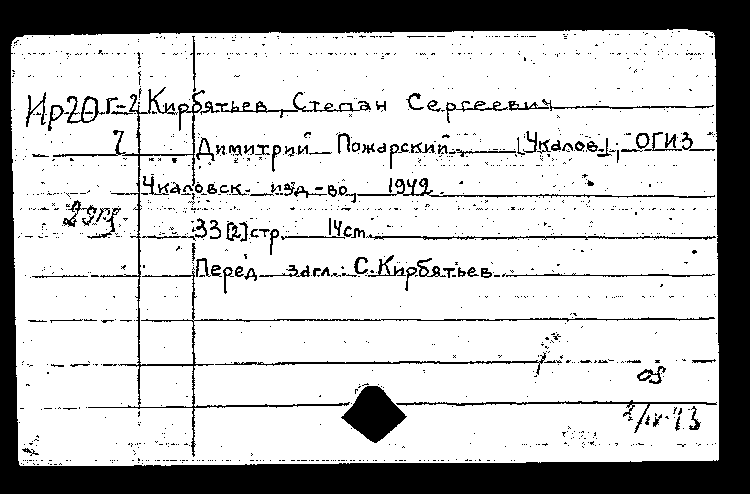 Ир20 г-2 Кирбятьев, Степан Сергеевич
7 Димитрий Пожарский. [Чкалов], ОГИЗ
Чкаловск. изд-во, 1942.
2 экз.
33 [2] стр. 14 cm.
Перед загл.: С. Кирбятьев.
os
2/IV-43